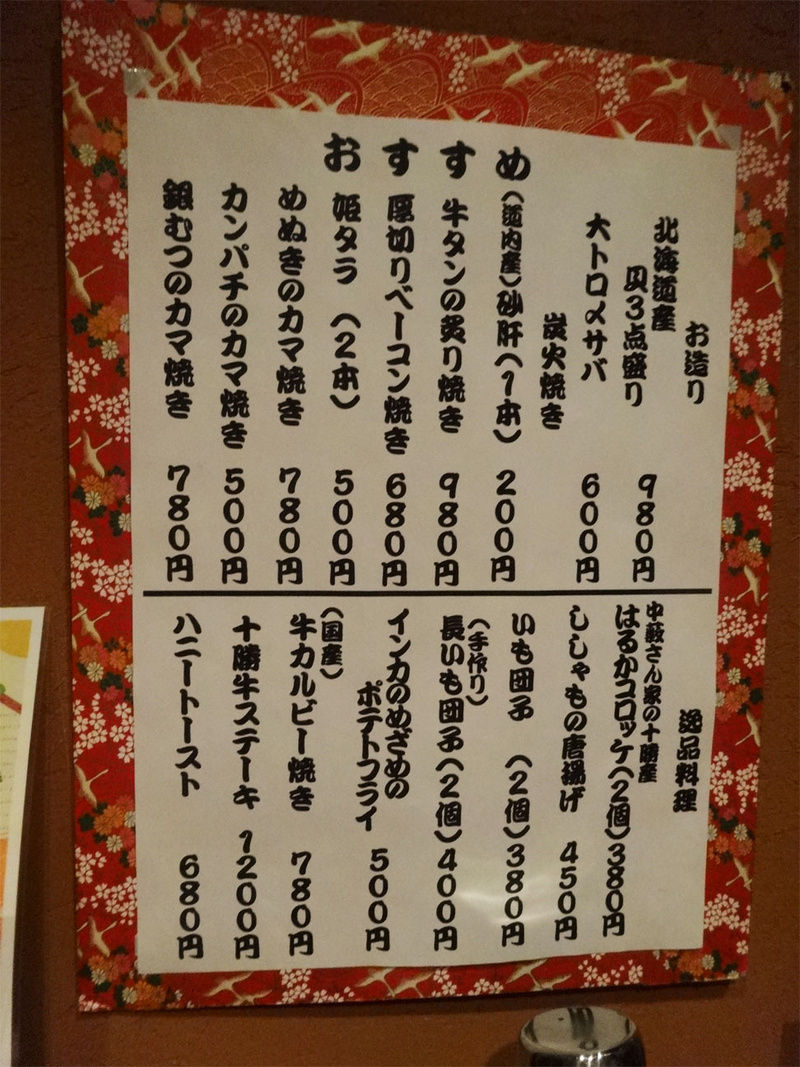 おすすめ
お造り
北海道産
貝3点盛り 980円
大トロ〆サバ 600円
炭火焼き
(道内産)砂肝(1本) 200円
牛タンの炙り焼き 980円
厚切りベーコン焼き 680円
姫タラ (2本) 500円
めぬきのカマ焼き 780円
カンパチのカマ焼き 500円
銀むつのカマ焼き 780円
逸品料理
中薮さん家の十勝産
はるかコロッケ(2個)380円
ししゃもの唐揚げ 450円
いも団子 (2個)380円
(手作り)
長いも団子(2個)400円
インカのめざめの
ポテトフライ 500円
(国産)
牛カルビー焼き 780円
十勝牛ステーキ 1200円
ハニートースト 680円